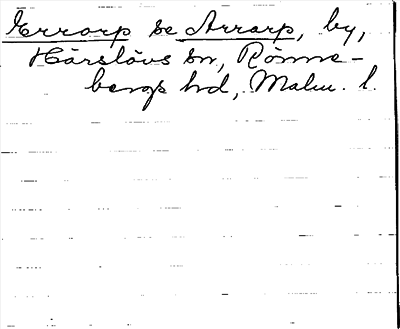 Errarp se Arrarp, by,
Härslövs sn, Rönne-
bergs hd, Malm. l.